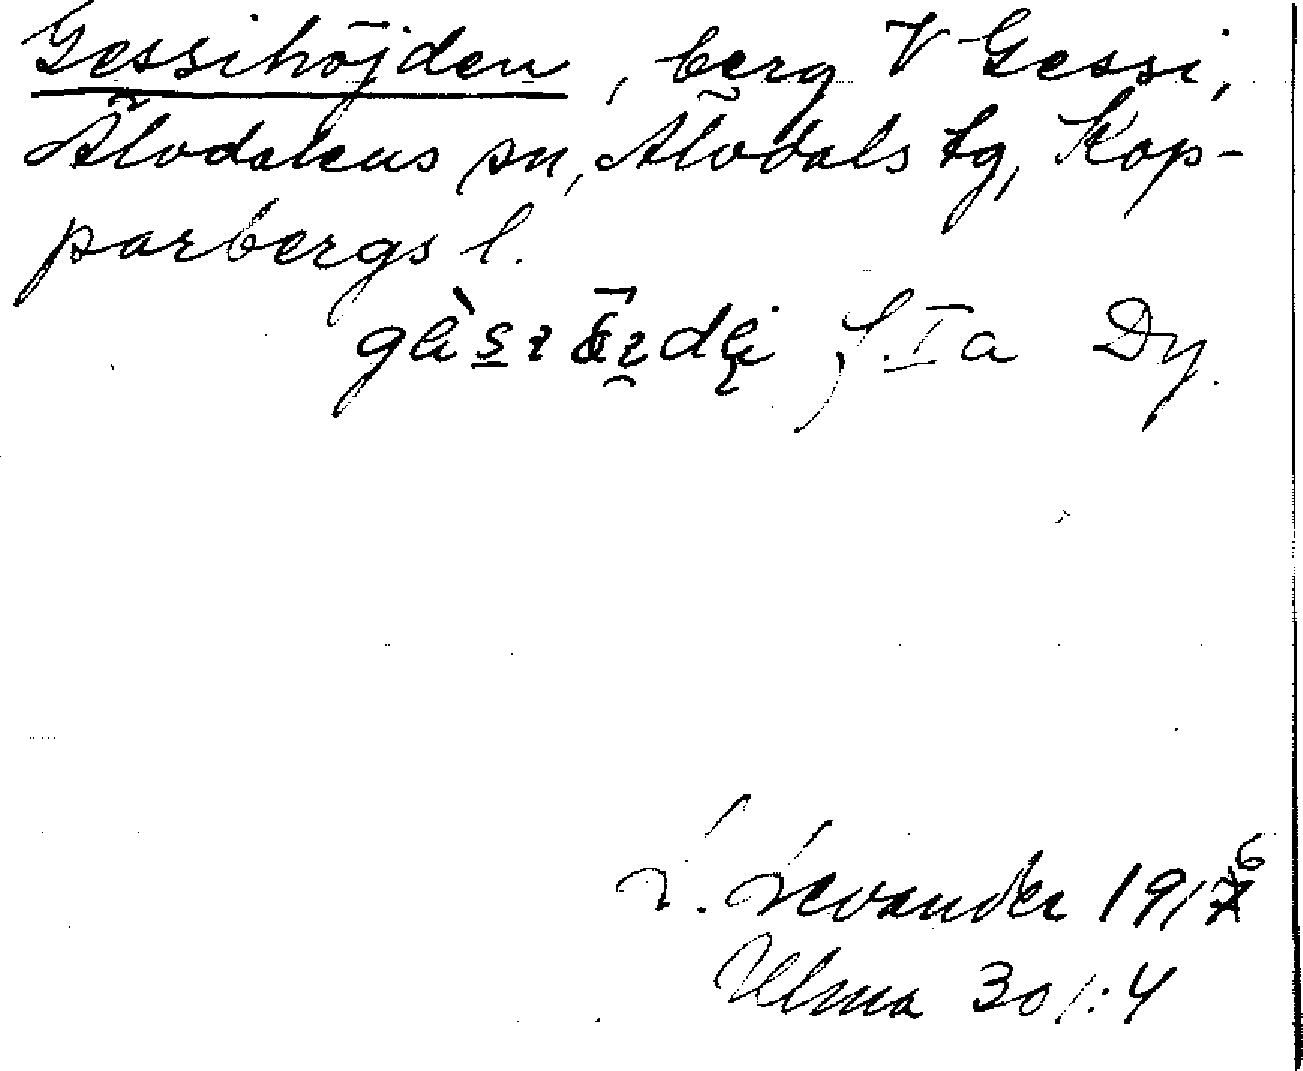 Gessihöjden, berg V Gessi,
Älvdalens sn, Älvdals tg, Kop-
parbergs l.
f. I a Dy.
L. Levander 1916
Ulma 301:4